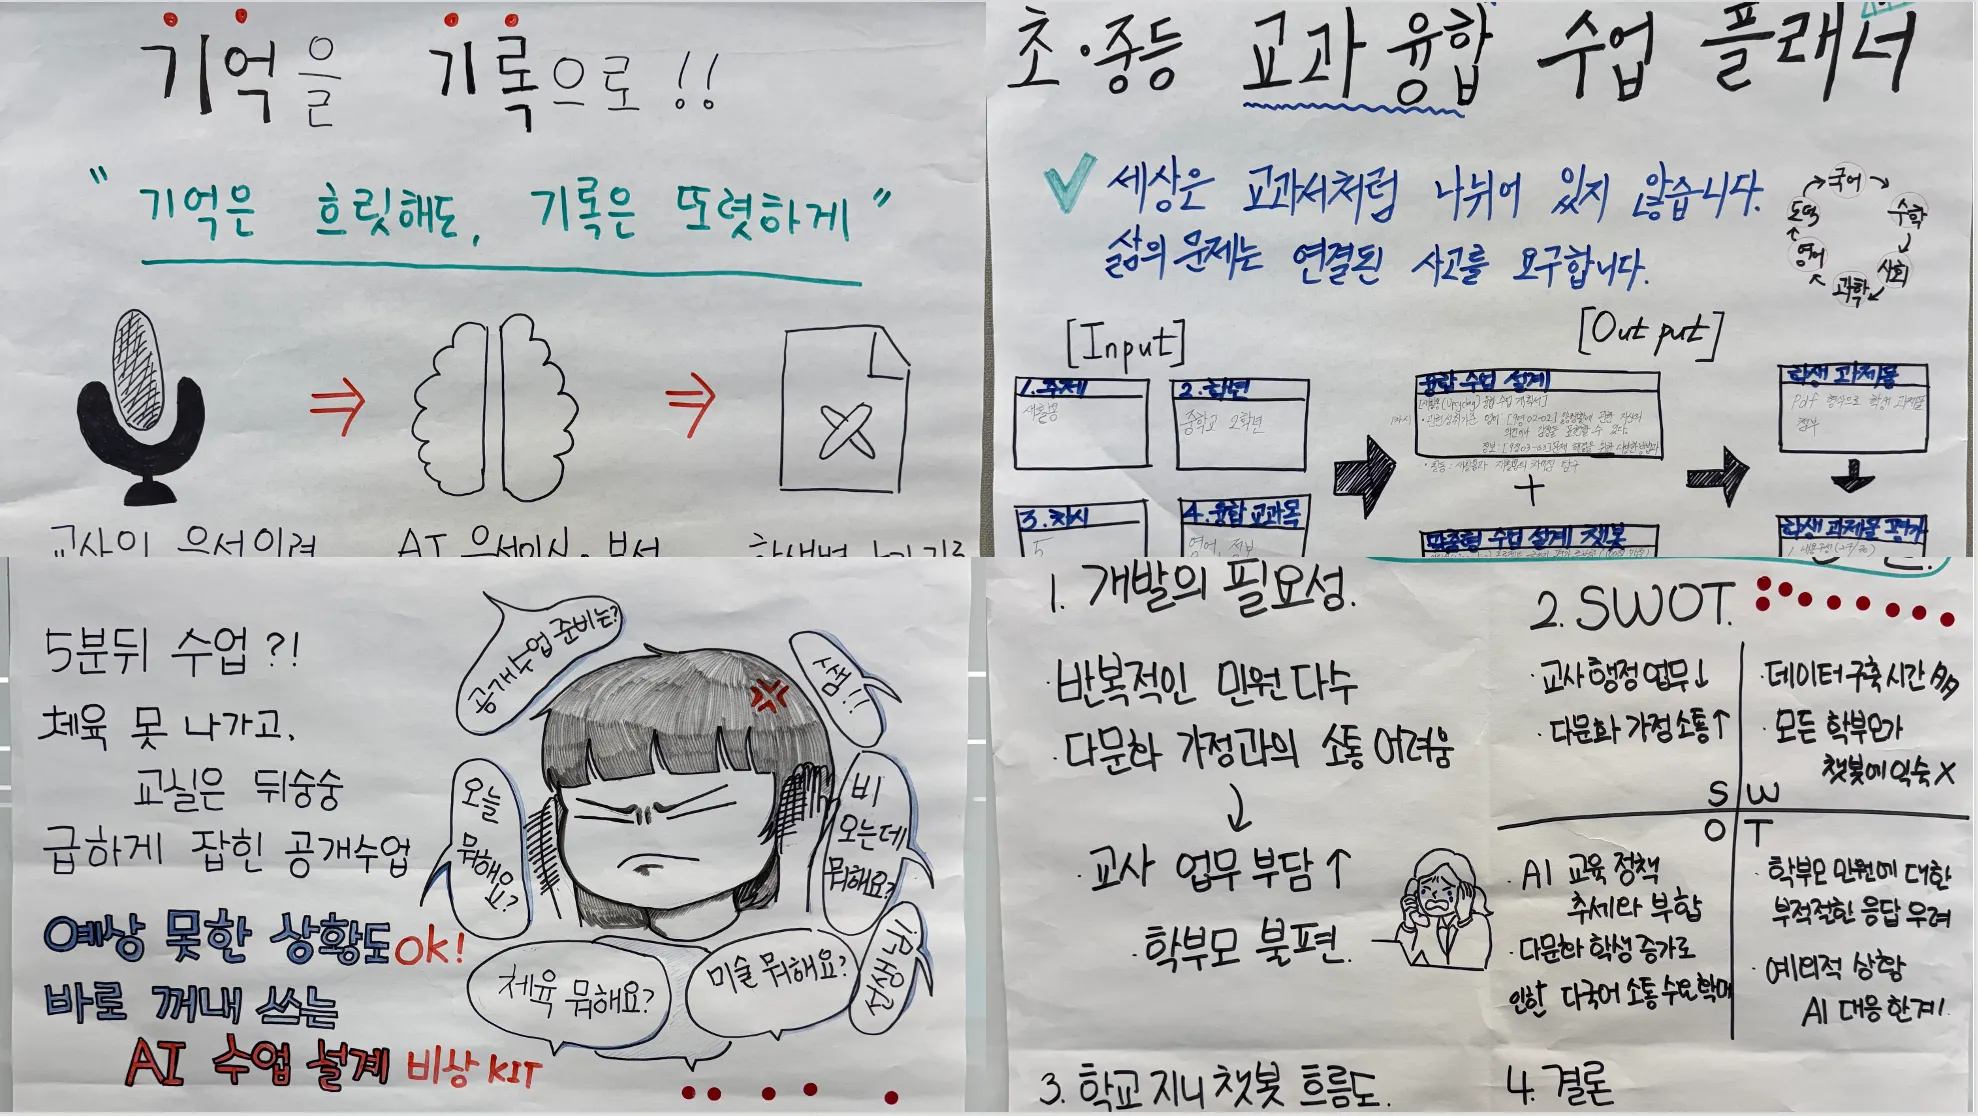 기억을 기록으로!!
"기억은 흐릿해도, 기록은 또렷하게"
교사의 음성이력
AI 음성인식·분석
초·중등 교과 융합 수업 플래너
세상은 교과서처럼 나뉘어 있지 않습니다.
삶의 문제는 연결된 사고를 요구합니다.
국어
수학
사회
과학
영어
도덕
[Input]
[Output]
1. 주제
새활용
2. 학년
중학교 2학년
3. 차시
5
4. 융합 교과목
영어, 정보
융합 수업 설계
맞춤형 수업 설계 챗봇
학생 과제물
Pdf 형식으로 학생 과제물
첨부
학생 과제물 평가
5분뒤 수업?!
체육 못 나가고,
교실은 뒤숭숭
급하게 잡힌 공개수업
예상 못한 상황도 OK!
바로 꺼내 쓰는
AI 수업 설계 비상 KIT
공개수업 준비는?
쌤!!
오늘 뭐해요?
비 오는데 뭐해요?
체육 뭐해요?
미술 뭐해요?
1. 개발의 필요성.
·반복적인 민원 다수
·다문화 가정과의 소통 어려움
↓
·교사 업무 부담↑
·학부모 불편.
2. SWOT.
·교사 행정 업무↓
·다문화 가정 소통↑
S
·데이터 구축 시간 多
·모든 학부모가
챗봇에 익숙 X
W
O
·AI 교육 정책
추세와 부합
·다문화 학생 증가로
인한 다국어 소통 수요 확대
T
·학부모 민원에 대한
부적절한 응답 우려
·예외적 상황
AI 대응 한계.
3. 학교지니 챗봇 흐름도.
4. 결론